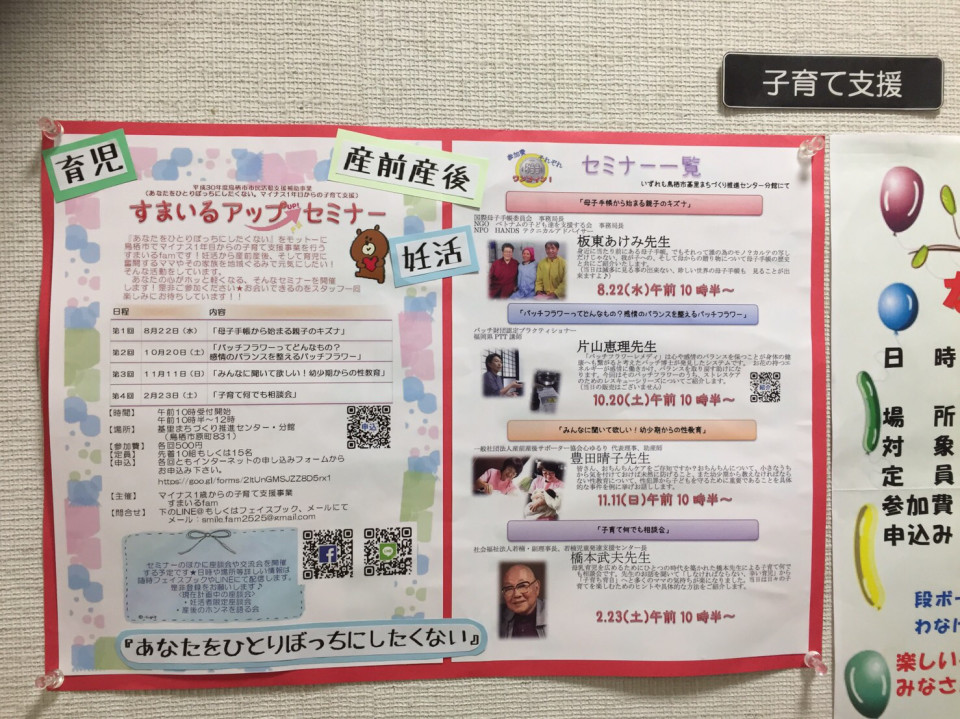 子育て支援
育児
産前産後
妊活
平成30年度鳥栖市市民活動支援補助事業
(あなたをひとりぼっちにしたくない。マイナス1才からの子育て支援)
すまいるアップセミナー
『あなたをひとりぼっちにしたくない』をモットーに
鳥栖市でマイナス1才からの子育て支援事業を行う
すまいるfamです!妊活から産前産後、そして育児に
奮闘するママやその家族を地域ぐるみで元気にしたい!
そんな活動をしています。
あなたの心がホッと軽くなる、そんなセミナーを開催
します!是非ご参加ください★お会いできるのをスタッフ一同
楽しみにお待ちしています!!
日程 内容
第1回 8月22日(水) 「母子手帳から始まる親子のキズナ」
第2回 10月20日(土) 「バッチフラワーってどんなもの?
感情のバランスを整えるバッチフラワー」
第3回 11月11日(日) 「みんなに聞いて欲しい!幼少期からの性教育」
第4回 2月23日(土) 「子育て何でも相談会」
【時間】 午前10時受付開始
午前10時半~12時
【場所】 基里まちづくり推進センター・分館
(鳥栖市原町831)
【参加費】 各回500円
【定員】 先着10組もしくは15名
【申込】 各回ともインターネットの申し込みフォームから
お申込み下さい。
https://goo.gl/forms/2ItUnGMSJZZ8D5rx1
申込
【主催】 マイナス1歳からの子育て支援事業
すまいるfam
【問合せ】 下のLINE@もしくはフェイスブック、メールにて
メール:smile.fam2525@gmail.com
セミナーのほかに座談会や交流会を開催
する予定です★日時や場所等詳しい情報は
随時フェイスブックやLINEにて配信します。
是非登録をお願いします♪
<現在計画中の座談会>
・妊活者限定座談会
・産後のホンネを語る会
『あなたをひとりぼっちにしたくない』
参加費 それぞれ
ワンコイン!
セミナー一覧
いずれも鳥栖市基里まちづくり推進センター分館にて
「母子手帳から始まる親子のキズナ」
国際母子手帳委員会 事務局長
NGO ベトナムの子ども達を支援する会 事務局長
NPO HANDS テクニカルアドバイザー
板東あけみ先生
8.22(水)午前10時半~
「バッチフラワーってどんなもの?感情のバランスを整えるバッチフラワー」
バッチ財団認定プラクティショナー
福岡県PTT講師
片山恵理先生
(当日の販売はございません)
紹介
10.20(土)午前10時半~
「みんなに聞いて欲しい!幼少期からの性教育」
一般社団法人産前産後サポーター協会心ゆるり 代表理事、助産師
豊田晴子先生
11.11(日)午前10時半~
「子育て何でも相談会」
社会福祉法人若楠・副理事長、若楠児童発達支援センター長
橋本武夫先生
2.23(土)午前10時半~
日 時
場 所
対 象
定 員
参加費
申込み
段ボー
わなげ
楽しい
みなさ